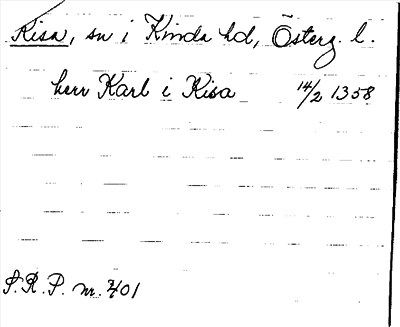 Kisa, sn i Kinda hd, Österg. l.
herr Karl i Kisa 14/2 1358
S.R.P. nr. 401